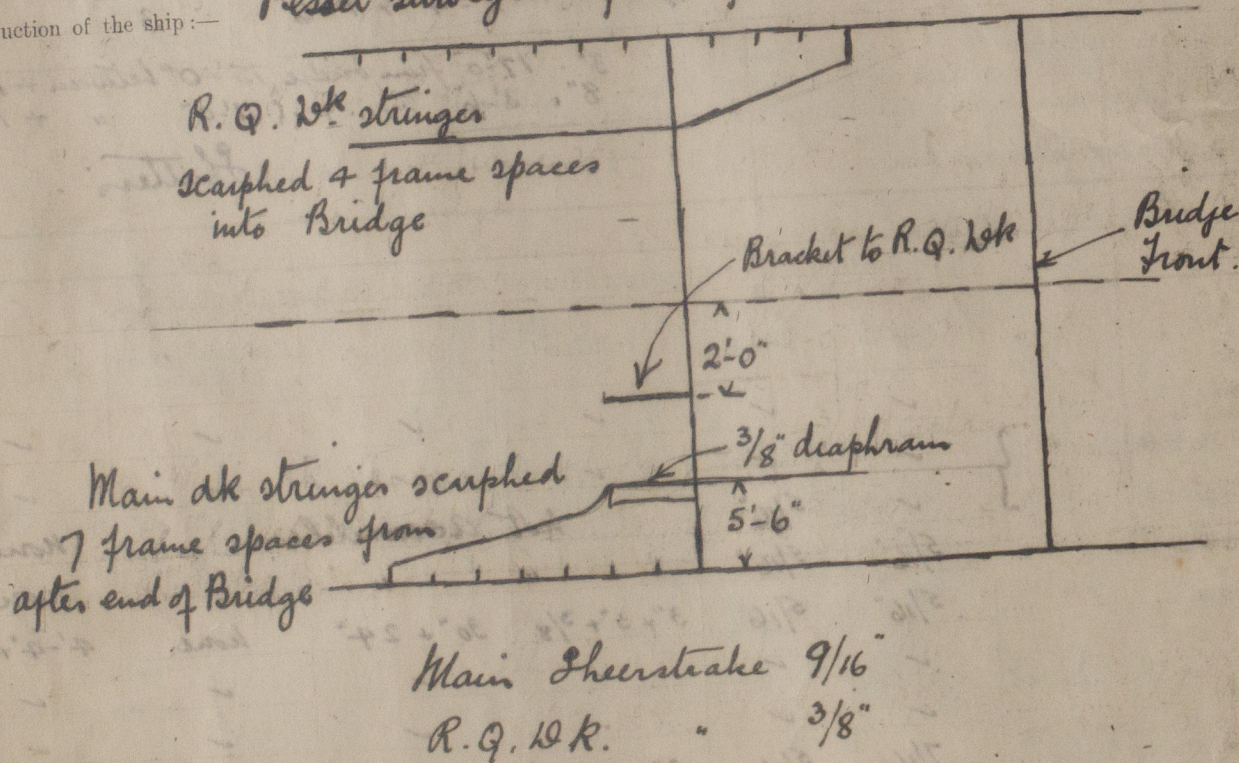 uction of the ship:—
Vessel surve
R. Q. Dk stringer
scarphed 4 frame spaces
into Bridge
Bracket to R. Q. Dk
Bridge
Front.
2'-0"
3/8" diaphram
Main dk stringer scarphed
7 frame spaces from
after end of Bridge
5'-6"
Main Sheerstrake 9/16"
R. Q. Dk. " 3/8"